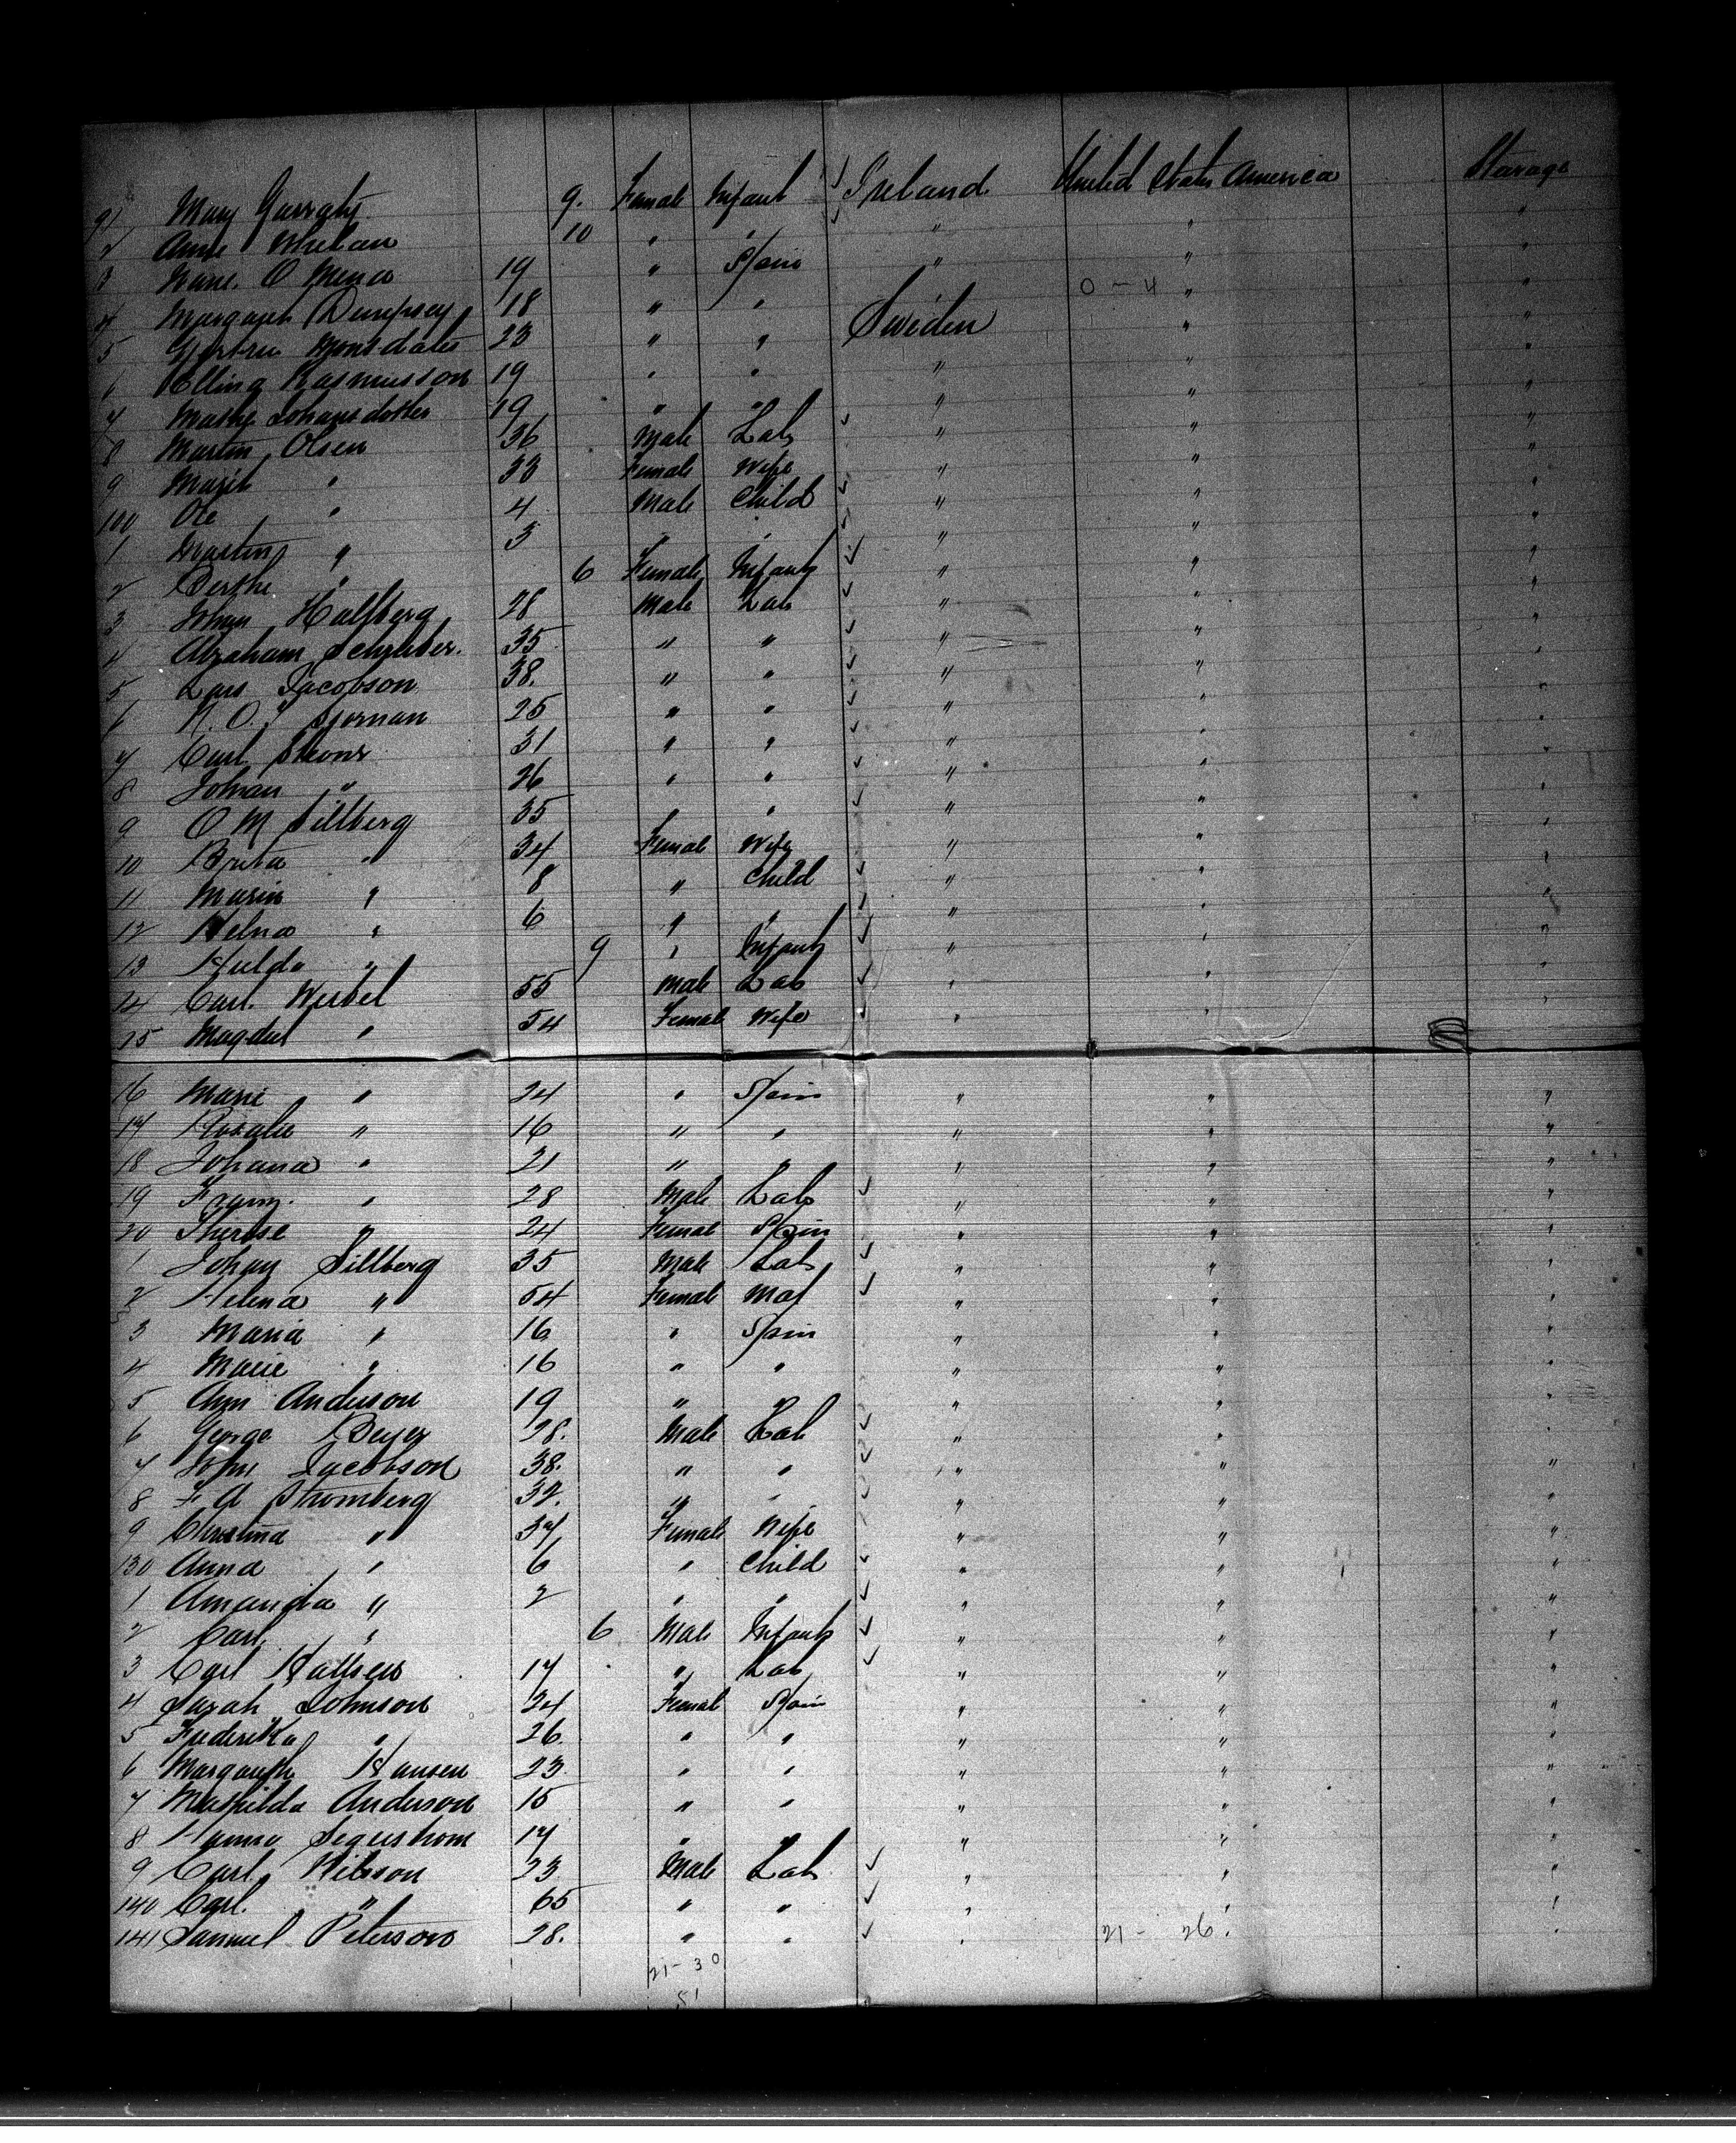 91 Mary Garraty 9. Female Infant Ireland United States America Starage
2 Anne Whelan 10 " " " " "
3 19 " Spin " " "
4 Margaret Dempsey 18 " " " "
5 23 " " Sweden " "
6 Elling Rasmusson 19 " " " " "
7 Mathe Johansdotter 19 " " " " "
8 Martin Olsen 36 Male Lab " " "
9 Marit " 33 Female Wife " " "
100 Ole " 4 Male Child " " "
1 Martin " 3 " " " " "
2 Berthe " 6 Female Infant " " "
3 Johan Hallberg 28 Male Lab " " "
4 Abraham Schrieber. 35 " " " " "
5 Lars Jacobson 38. " " " " "
6 25 " " " " "
7 Carl 31 " " " " "
8 Johan " 26 " " " " "
9 O M Sillberg 35 " " " " "
10 Brita " 34 Female Wife " " "
11 Marin " 8 " Child " " "
12 Helna " 6 " " " " "
13 Hulda " 9 " Infant " " "
14 Carl. Weibel 55 Male Lab " " "
15 Magdal " 54 Female Wife " "
16 Marie " 24 " Spin " " "
17 Rosalie " 16 " " " " "
18 Johana " 21 " " " " "
19 Franz. " 28 Male Lab " " "
20 Therese " 24 Female Spin " " "
1 Johan Sillberg 35 Male Lab " " "
2 Helena " 54 Female Mat " " "
3 Maria " 16 " Spin " " "
4 Marie " 16 " " " " "
5 Ann Anderson 19 " " " " "
6 George Beyer 28. Male Lab " " "
7 John Jacobson 38. " " " " "
8 F A Stromberg 32. " " " " "
9 Christina " 34 Female Wife " " "
130 Anna " 6 " Child " " "
1 Amanda " 2 " " " " "
2 Carl " 6 Male Infant " " "
3 Carl 17 " Lab " " "
4 Sarah Johnson 24 Female Spin " " "
5 Frederika " 26. " " " " "
6 Margareth Hansen 23. " " " " "
7 Mathilda Anderson 15 " " " " "
8 Hanna Segerstrom 17 " " " " "
9 Carl Nilsson 23 Male Lab " " "
140 Carl. " 65 " " " " "
141 Samuel Peterson 28. " " " " "
21-30